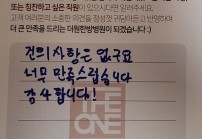 또는 칭찬하고 싶은 직원이 있으시다면 알려주세요.
고객 여러분의 소중한 의견을 정성껏 귀담아듣고 반영하여
더 큰 만족을 드리는 더원한방병원이 되겠습니다 :)
건의사항은 없구요
너무 만족스럽습니다
감사합니다!
THE
ONE